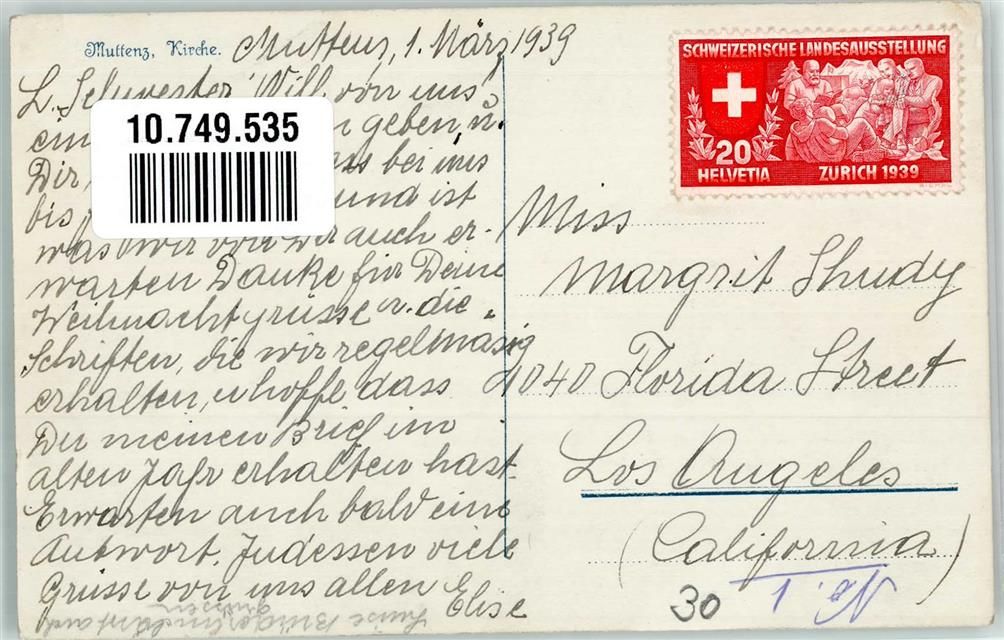 Muttenz, Kirche.
Muttenz, 1. März 1939
L. Schwester! Will von uns
ein geben, u.
Dir, bei uns
bis und ist
was wir von Dir auch er-
warten Danke für Deine
Weihnachtsgrüsse u. die
Schriften, die wir regelmäsig
erhalten, u hoffe dass
Du meinen Brief im
alten Jahr erhalten hast.
Erwarten auch bald eine
Antwort. Indessen viele
Grüsse von uns allen Elise
grüssen
10.749.535
SCHWEIZERISCHE LANDESAUSSTELLUNG
20
HELVETIA ZURICH 1939
Miss
Margrit Thudy
1040 Florida Street
Los Angeles
(California)
30
No. 1